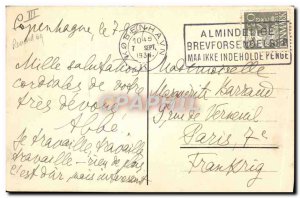 III
Copenhague, le 7
KØBENHAVN
1045
7 SEPT.
1934
ALMINDELIGE
BREVFORSENDELSER
MAA IKKE INDEHOLDE PENGE
Mille salutations
cordiales de votre
très dévoué
Abbé
Je travaille, travaille,
travaille – rien de plus
c'est dur, mais intéressant
Mademoiselle
Marguerite
rue de Verneuil
Paris, 7e
Frankrig